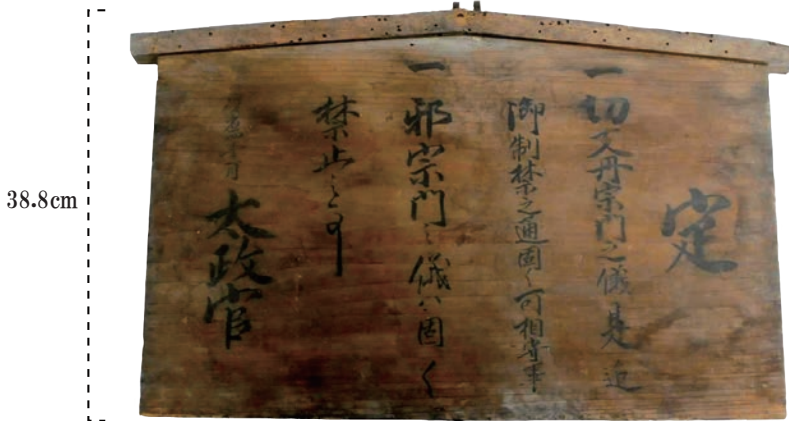 38.8cm
定
一 切支丹宗門之儀是迄
御制禁之通固く可相守事
一 邪宗門之儀ハ固く
禁止之事
月 太政官